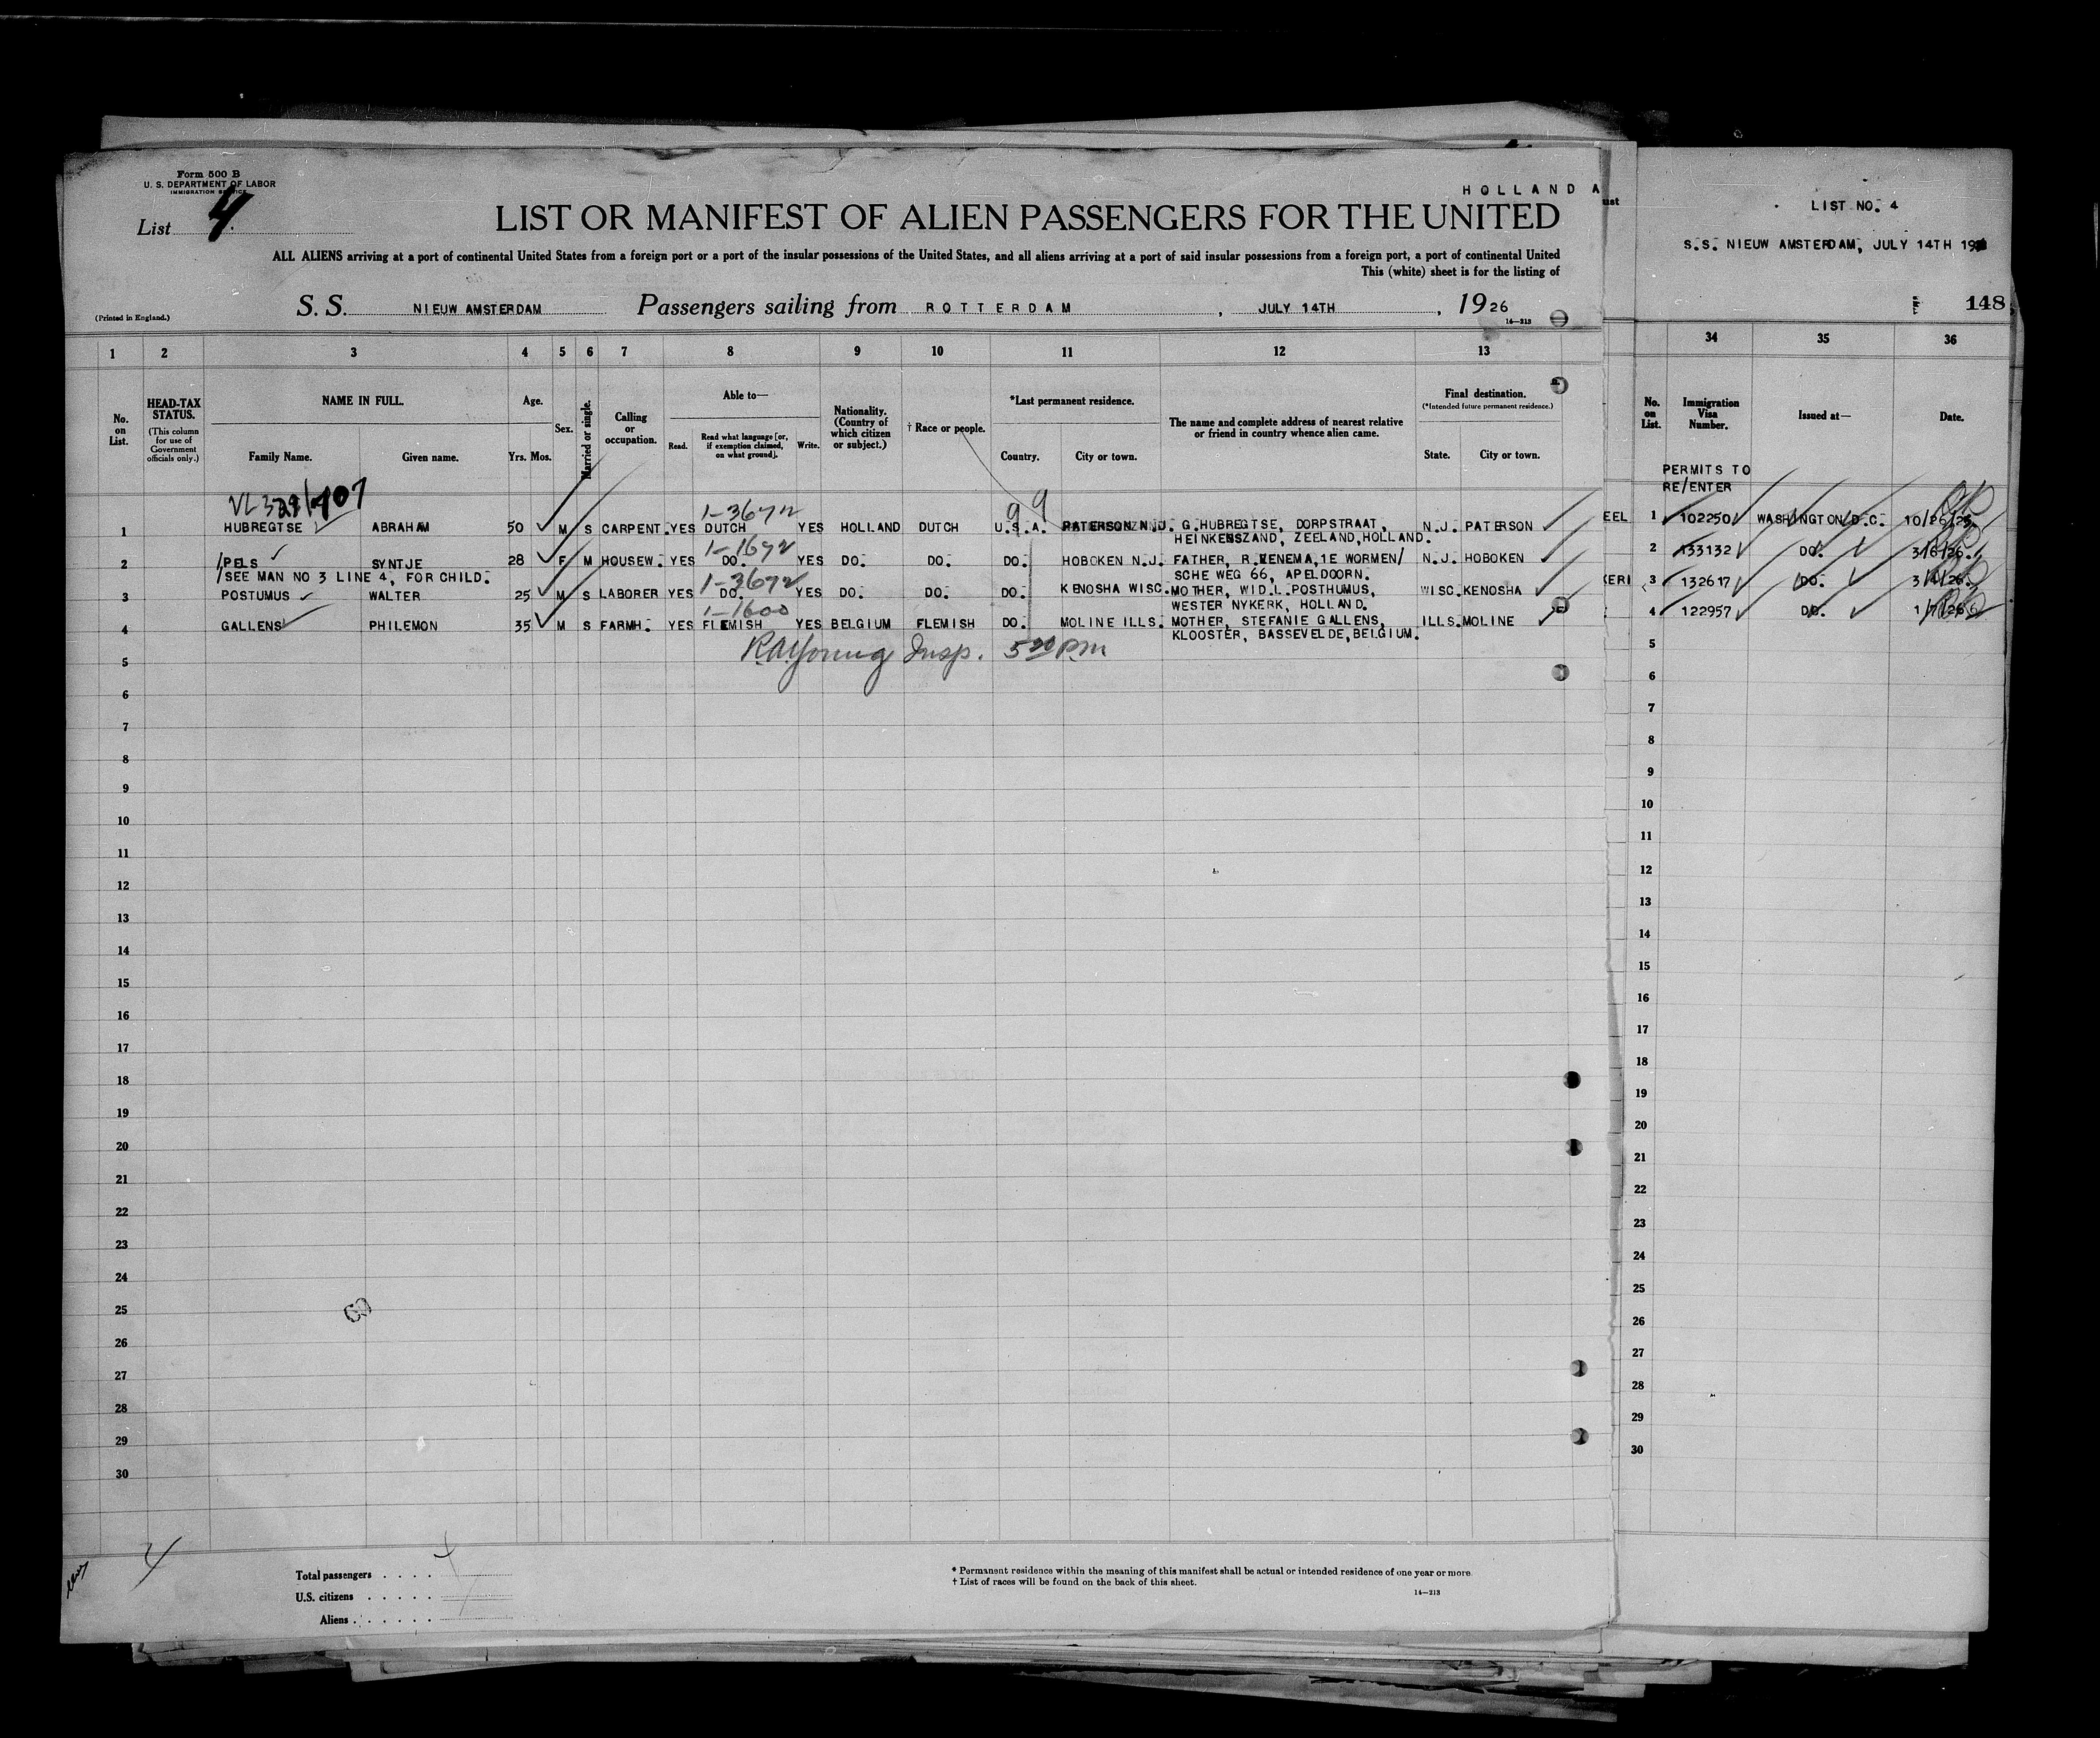 Form 500 B
U. S. DEPARTMENT OF LABOR
IMMIGRATION SERVICE
List 4.
HOLLAND A
LIST OR MANIFEST OF ALIEN PASSENGERS FOR THE UNITED
ALL ALIENS arriving at a port of continental United States from a foreign port or a port of the insular possessions of the United States, and all aliens arriving at a port of said insular possessions from a foreign port, a port of continental United
This (white) sheet is for the listing of
(Printed in England.)
S. S. NIEUW AMSTERDAM Passengers sailing from ROTTERDAM, JULY 14TH, 1926
14—213
LIST NO. 4
S.S. NIEUW AMSTERDAM, JULY 14TH
148
1 2 3 4 5 6 7 8 9 10 11 12 13 34 35 36
No. on List.
HEAD-TAX STATUS.
(This column for use of Government officials only.)
NAME IN FULL.
Family Name. Given name.
Age.
Yrs. Mos.
Sex.
Married or single.
Calling or occupation.
Able to—
Read. Read what language [or, if exemption claimed, on what ground]. Write.
Nationality. (Country of which citizen or subject.)
† Race or people.
*Last permanent residence.
Country. City or town.
The name and complete address of nearest relative or friend in country whence alien came.
Final destination.
(*Intended future permanent residence.)
State. City or town.
No. on List.
Immigration Visa Number.
Issued at—
Date.
PERMITS TO
RE/ENTER
1-3672
1 HUBREGTSE ABRAHAM 50 M S CARPENT. YES DUTCH YES HOLLAND DUTCH U.S.A. PATERSON N.J. G.HUBREGTSE, DORPSTRAAT, N.J. PATERSON
HEINKENSZAND, ZEELAND,HOLLAND.
EEL 1 102250 WASHINGTON D.C. 10/26/25
1-1672
2 /PELS SYNTJE 28 F M HOUSEW. YES DO. YES DO. DO. DO. HOBOKEN N.J. FATHER, R.VENEMA,1E WORMEN/ N.J. HOBOKEN
/SEE MAN NO 3 LINE 4, FOR CHILD. SCHE WEG 66, APELDOORN.
2 133132 DO. 3/6/26.
1-3672
3 POSTUMUS WALTER 25 M S LABORER YES DO. YES DO. DO. DO. KENOSHA WISC. MOTHER, WID.L.POSTHUMUS, WISC. KENOSHA
WESTER NYKERK, HOLLAND.
KERI 3 132617 DO. 3/4/26.
1-1600
4 GALLENS PHILEMON 35 M S FARMH. YES FLEMISH YES BELGIUM FLEMISH DO. MOLINE ILLS. MOTHER, STEFANIE GALLENS, ILLS. MOLINE
KLOOSTER, BASSEVELDE,BELGIUM.
4 122957 DO.
Insp. 5 20 pm
5 5
6 6
7 7
8 8
9 9
10 10
11 11
12 12
13 13
14 14
15 15
16 16
17 17
18 18
19 19
20 20
21 21
22 22
23 23
24 24
25 25
26 26
27 27
28 28
29 29
30 30
4
Total passengers
U.S. citizens
Aliens
* Permanent residence within the meaning of this manifest shall be actual or intended residence of one year or more.
† List of races will be found on the back of this sheet.
14—213